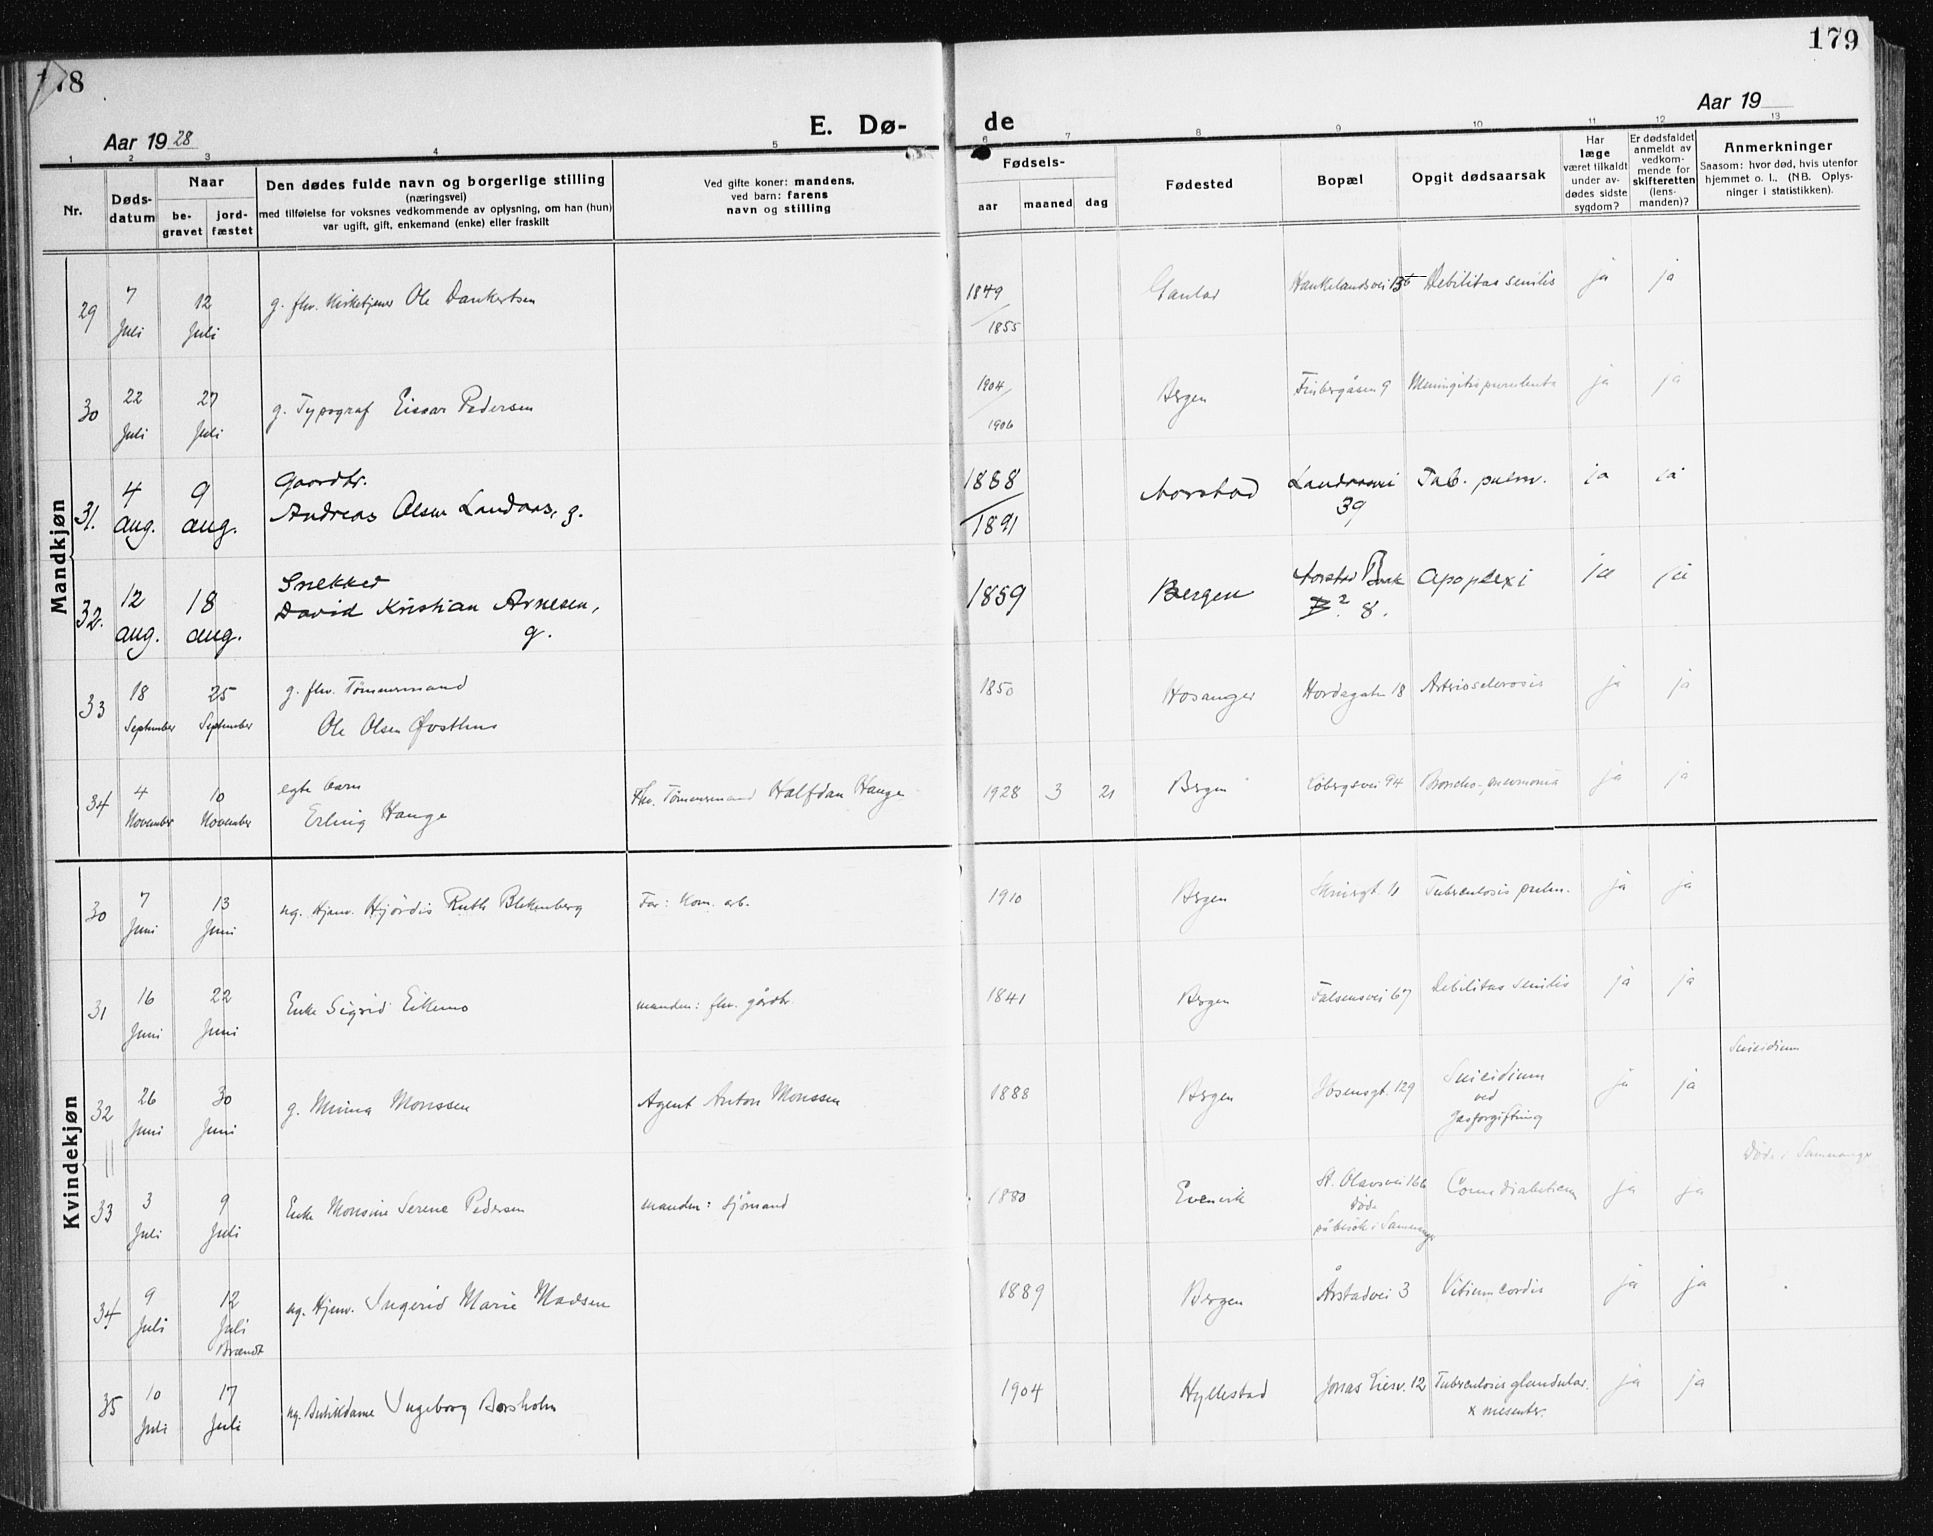 178
179
Aar 1928
E. Dø-
de
Aar 19
1 2 3 4 5 6 7 8 9 10 11 12 13
Nr.
Døds-
datum
Naar
be-
gravet
jord-
fæstet
Den dødes fulde navn og borgerlige stilling
(næringsvei)
med tilføielse for voksnes vedkommende av oplysning, om han (hun)
var ugift, gift, enkemand (enke) eller fraskilt
Ved gifte koner: mandens,
ved barn: farens
navn og stilling
Fødsels-
aar maaned dag
Fødested
Bopæl
Opgit dødsaarsak
Har
læge
været tilkaldt
under av-
dødes sidste
sygdom?
Er dødsfaldet
anmeldt av
vedkom-
mende for
skifteretten
(lens-
manden)?
Anmerkninger
Saasom: hvor død, hvis utenfor
hjemmet o. l., (NB. Oplys-
ninger i statistikken).
Mandkjøn
29 7 Juli 12 Juli g. fhv. Kirketjener Ole Dankertsen 1849 / 1855 Gaular Haukelandsvei Debilitas senilis ja ja
30 22 Juli 27 Juli g. Typograf Einar Pedersen 1904 / 1906 Bergen 9 Meningitis purulenta ja ja
31. 4 aug. 9 aug. Gaardbr.
Andreas Olsen Landaas, g. 1888 / 1891 Aarstad Landaasvei
39 Tub. pulm. ja ja
32. 12 aug. 18 aug. Snekker
David Kristian Arnesen,
g. 1859 Bergen Aarstad
8. Apoplexi ja ja
33 18 September 25 September g. fhv. Tømmermand
Ole Olsen Øvsthus 1850 Hosanger Hordagaten 18 Arteriosclerosis ja ja
34 4 November 10 November egte barn
Erling Hauge Fhv. Tømmermand Halfdan Hauge 1928 3 21 Bergen Løbergsvei 94 Broncho-pneumonia ja ja
Kvindekjøn
30 7 Juni 13 Juni ug. Hjemv. Hjördis Ruth Blekenberg Far: Kom. arb. 1910 Bergen 11 Tuberculosis pulm. ja ja
31 16 Juni 22 Juni Enke Sigrid Eikemo manden: fhv. gårdbr. 1841 Bergen Falsensvei 67 Debilitas senilis ja ja
32 26 Juni 30 Juni g. Minna Monssen Agent Anton Monssen 1888 Bergen Ibsensgt. 129 Suicidium
ved
Gasforgiftning ja ja Suicidium
33 3 Juli 9 Juli Enke Monsine Serene Pedersen manden: sjömand 1880 Evenvik St. Olavsvei 16b
Döde
på besök i Samnanger Coma diabeticum ja ja Döde i Samnanger
34 9 Juli 12 Juli
Brændt ug. Hjemv. Ingerid Marie Madsen 1889 Bergen Årstadvei 3 Vitium cordis ja ja
35 10 Juli 17 Juli ug. Butikdame Ingeborg Aarsholm 1904 Hyllestad Jonas Liesv. 12 Tuberculosis glandular.
x mesenter. ja ja